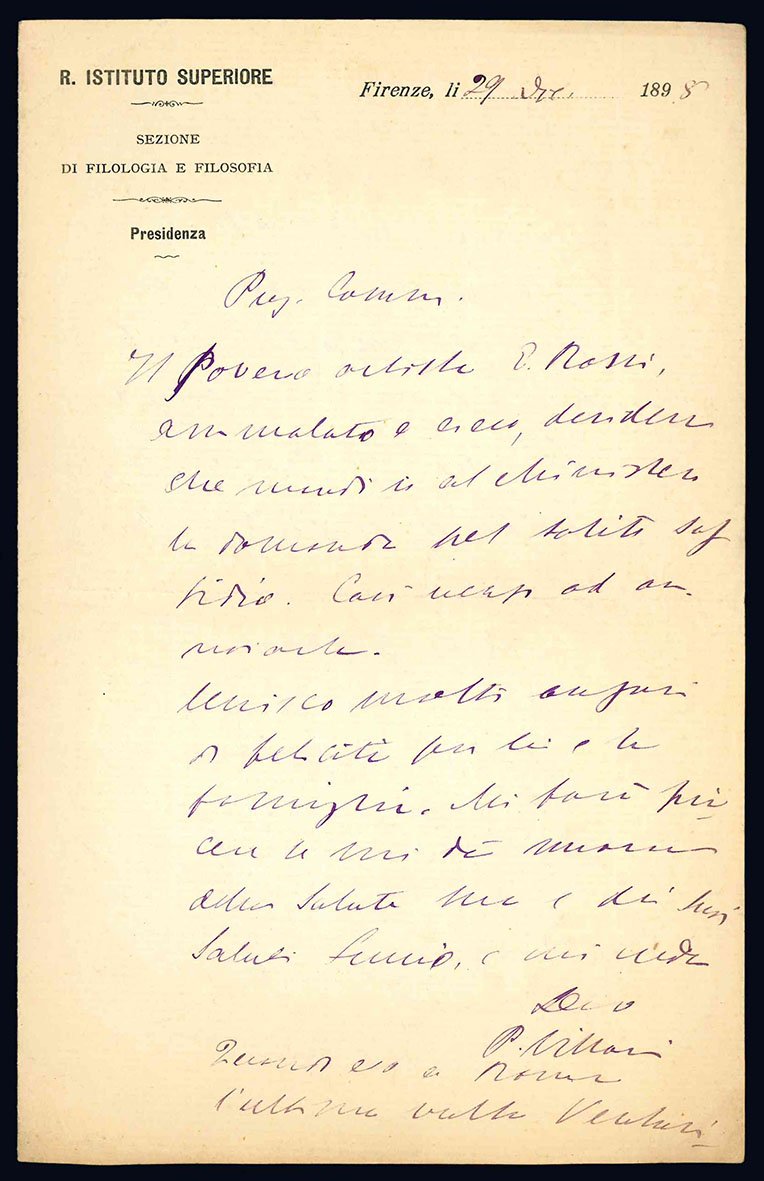 R. ISTITUTO SUPERIORE
SEZIONE
DI FILOLOGIA E FILOSOFIA
Presidenza
Firenze, li 29 Dic. 1898
Preg. Comm.
Il povero artista E. Rossi,
ammalato e cieco, desidera
che mandi io al Ministero
la domanda pel solito sus
sidio. Così vengo ad an
noiarla.
Unisco molti auguri
di felicità per lei e la
famiglia. Mi farà pia
cere se mi dà nuove
della salute sua e dei suoi
Saluti e mi creda
Devo
P. Villari
Quando ero a Roma
l'ultima volta